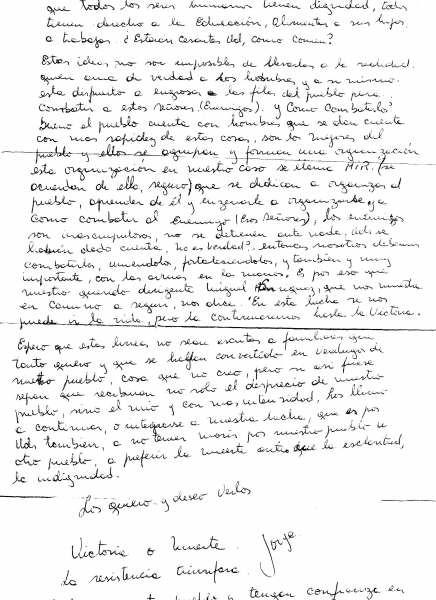 que todos los seres humanos tienen dignidad, todos
tienen derecho a la Educación, Alimentar a sus hijos,
a trabajar ¿Estaran cesantes Ud, como comen?
Estas ideas no son imposibles de llevarlas a la realidad.
quien ama de verdad a los hombres y a si mismo
esta dispuesto a engrosar las filas del pueblo para
combatir a estos señores (Enemigos). y Como Combatirlo?
Bueno el pueblo cuenta con hombres que se dan cuenta
con mas rapidez de estas cosas, son lo mejores del
pueblo y ellos se agrupan y forman una organización
esta organización en nuestro caso se llama MIR. (se
acuerdan de ella, seguro) que se dedican a organizar al
pueblo, aprender de él y enseñarle a organizarse y a
como combatir al Enemigo (Los Señores), los enemigos
son inescrupulosos, no se detienen ante nada, Uds. se
habrán dado cuenta, No es verdad? entonces nosotros debemos
combatirlos, uniendolos, fortaleciendolos, y tambien y muy
importante, con las armas en la mano. Es por eso que
nuestro querido dirigente Miguel Enriquez, que nos
en camino a seguir, nos dice. "En esta lucha se nos
puede ir la vida, pero la continuaremos hasta la Victoria.
Espero que estas lineas, no sean escritas a familiares que
tanto quiero y que se hallan convertido en verdugos de
nuestro pueblo, cosa que no creo, pero si asi fuese
sepan que recibiran no solo el desprecio de nuestro
pueblo, sino el mio y con mas intensidad, los llamo
a continuar, o integrarse a nuestra lucha, que es por
Uds tambien, a no temer morir por nuestro pueblo u
otro pueblo, a preferir la muerte antes que la esclavitud,
la indignidad.
Los quiero y deseo verlos
Victoria o Muerte. Jorge
La resistencia triunfara.
pueblo y tengan confianza en